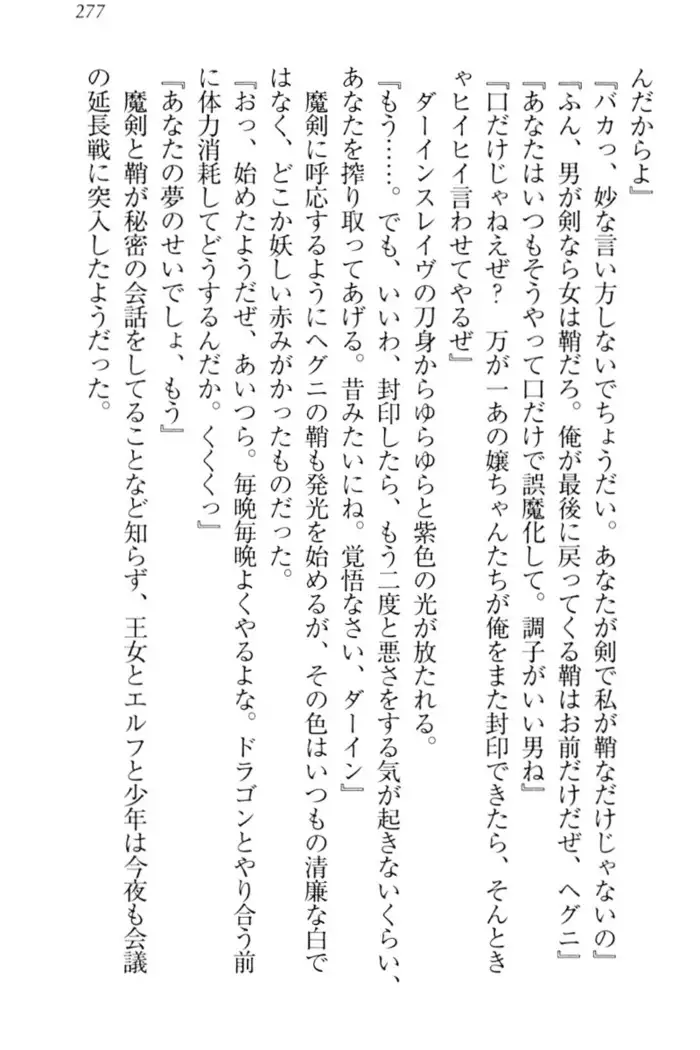 277
んだからよ』
『バカっ、妙な言い方しないでちょうだい。あなたが剣で私が鞘なだけじゃないの』
『ふん、男が剣なら女は鞘だろ。俺が最後に戻ってくる鞘はお前だけだぜ、ヘグニ』
『あなたはいつもそうやって口だけで誤魔化して。調子がいい男ね』
『口だけじゃねえぜ？　万が一あの嬢ちゃんたちが俺をまた封印できたら、そんとき
ゃヒイヒイ言わせてやるぜ』
ダーインスレイヴの刀身からゆらゆらと紫色の光が放たれる。
『もう……。でも、いいわ、封印したら、もう二度と悪さをする気が起きないくらい、
あなたを搾り取ってあげる。昔みたいにね。覚悟なさい、ダーイン』
魔剣に呼応するようにヘグニの鞘も発光を始めるが、その色はいつもの清廉な白で
はなく、どこか妖しい赤みがかったものだった。
『おっ、始めたようだぜ、あいつら。毎晩毎晩よくやるよな。ドラゴンとやり合う前
に体力消耗してどうするんだか。くくくっ』
『あなたの夢のせいでしょ、もう』
魔剣と鞘が秘密の会話をしてることなど知らず、王女とエルフと少年は今夜も会議
の延長戦に突入したようだった。